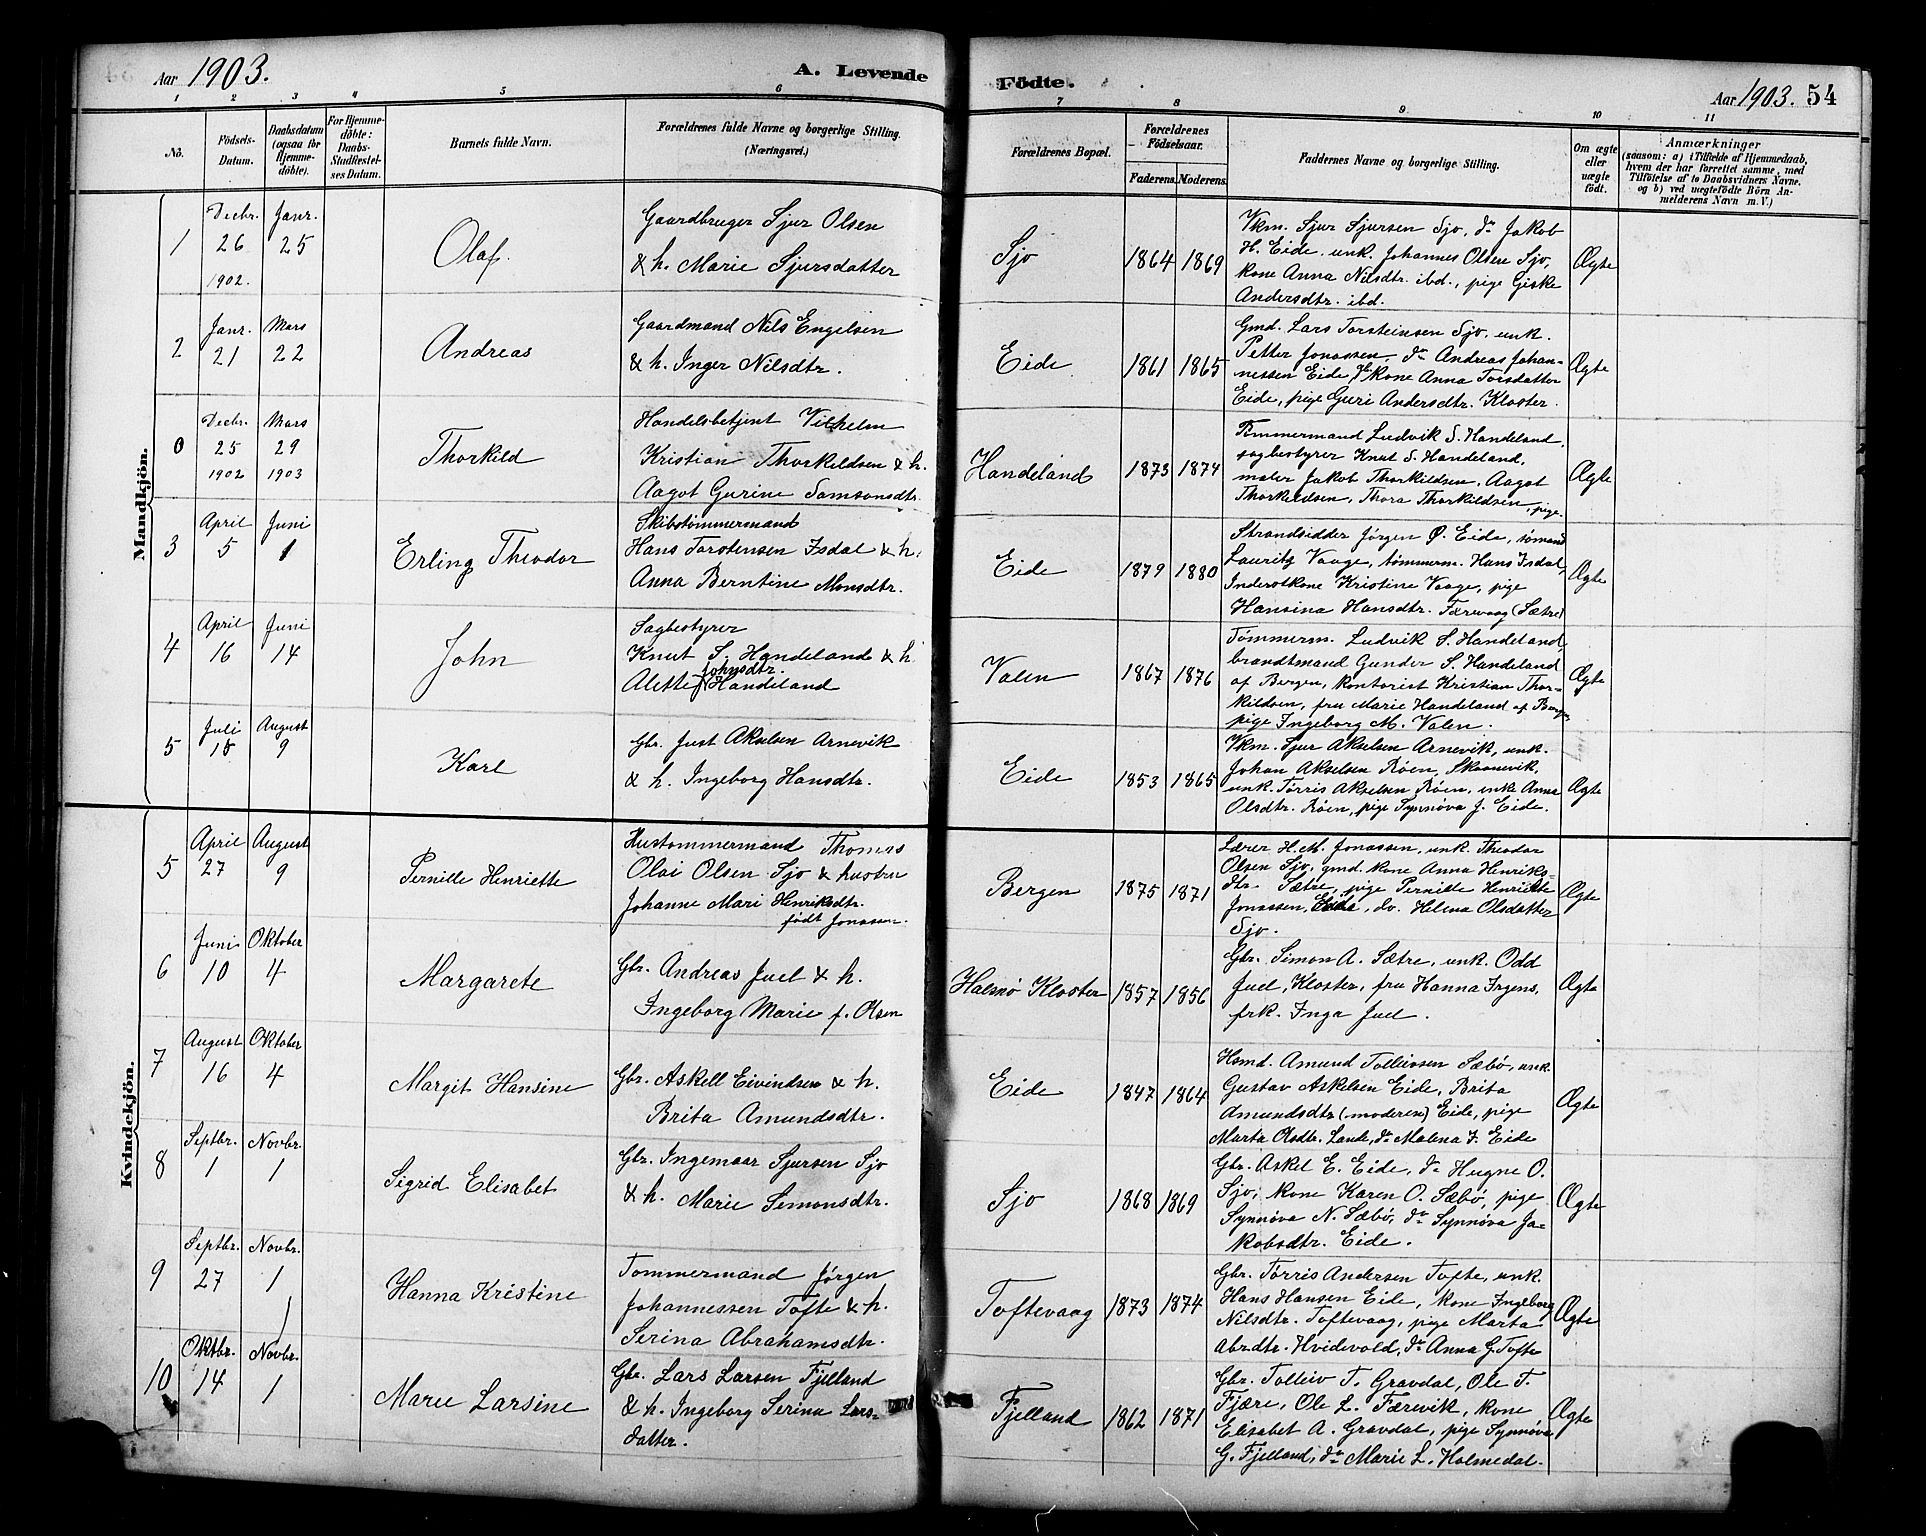 Aar 1903.
A. Levende
Födte.
Aar 1903. 54
1 2 3 4 5 6 7 8 9 10 11
No.
Födsels-
Datum.
Daabsdatum
(ogsaa for
Hjemme-
döbte).
For Hjemme-
döbte:
Daabs-
Stadfestel-
ses Datum.
Barnets fulde Navn.
Forældrenes fulde Navne og borgerlige Stilling.
(Næringsvei.)
Forældrenes Bopæl.
Forældrenes
Födselsaar.
Faderens. Moderens.
Faddernes Navne og borgerlige Stilling.
Om ægte
eller
uægte
födt.
Anmærkninger
(saasom: a) i Tilfælde af Hjemmedaab,
hvem der har forrettet samme, med
Tilföielse af to Daabsvidners Navne,
og b) ved uægtefödte Börn An-
melderens Navn m. V.)
Mandkjön.
1
Decbr.
26
1902.
Janr.
25
Olaf.
Gaardbruger Sjur Olsen
& h. Marie Sjursdatter
Sjo
1864 1869
Vkm. Sjur Sjursen Sjo, do Jakob
H. Eide, unk. Johannes Olsen Sjo,
kone Anna Nilsdtr. ibd., pige Giske
Andersdtr. ibd.
Ægte
2
Janr.
21
Mars
22
Andreas
Gaardmand Nils Engelsen
& h. Inger Nilsdtr.
Eide
1861 1865
Gmd. Lars Torsteinsen Sjo, unk.
Petter Jonassen, do Andreas Johan-
nessen Eide, kone Anna Torsdatter
Eide, pige Guri Andersdtr. Kloster.
Ægte
0
Decbr.
25
1902
Mars
29
1903
Thorkild
Handelsbetjent Vilhelm
Kristian Thorkildsen & h.
Aagot Gurine Samsonsdtr.
Handeland
1873 1874
Tømmermand Ludvik S. Handeland,
sagbestyrer Knut S. Handeland,
maler Jakob Thorkildsen, Aagot
Thorkildsen, Thora Thorkildsen, pige.
Ægte
3
April
5
Juni
1
Erling Theodor
Skibstømmermand
Hans Torstensen Isdal & h.
Anna Berntine Monsdtr.
Eide
1879 1880
Strandsidder Jørgen Ø. Eide, sømand
Lauritz Vaage, tømmerm. Hans Isdal,
Inderstkone Kristine Vaage, pige
Hansina Hansdtr. Færevaag (Sætre)
Ægte
4
April
16
Juni
14
John
Sagbestyrer
Knut S. Handeland & h.
Johnsdtr.
Alette Handeland
Valen
1867 1876
Tømmerm. Ludvik S. Handeland
brandtmand Gunder S. Handeland
af Bergen, kontorist Kristian Thor-
kildsen, fru Marie Handeland af Bergen
pige Ingeborg M. Valen.
Ægte
5
Juli
18
August
9
Karl
Gbr. Just Akselsen Arnevik
& h. Ingeborg Hansdtr.
Eide
1853 1865
Vkm. Sjur Akselsen Arnevik, unk.
Johan Akselsen Røen, Skaanevik,
unk. Tørris Akselsen Røen, enke Anna
Olsdtr. Røen, pige Synnøva J. Eide.
Ægte
Kvindekjön.
5
April
27
August
9
Pernille Henriette
Hustømmermand Thomas
Olai Olsen Sjo & hustru
Johanne Mari Henriksdtr.
født Jonassen.
Bergen
1875 1871
Lærer H. M. Jonassen, unk. Theodor
Olsen Sjo, gmd. kone Anna Henriks-
dtr. Sætre, pige Pernille Henriette
Jonassen, Eide, do. Helena Olsdatter
Sjo.
Ægte
6
Juni
10
Oktober
4
Margarete
Gbr. Andreas Juel & h.
Ingeborg Marie f. Olsen
Halsnø Kloster
1857 1856
Gbr. Simon A. Sætre, unk. Odd
Juel, Kloster, fru Hanna Irgens,
frk. Inga Juel.
Ægte
7
August
16
Oktober
4
Margit Hansine
Gbr. Askell Eivindsen & h.
Brita Amundsdtr.
Eide
1847 1864
Hsmd. Amund Tolleivsen Sæbø, unk.
Gustav Askelsen Eide, Brita
Amundsdtr (moderen) Eide, pige
Marta Olsdtr. Lande, do Malena J. Eide
Ægte
8
Septbr.
1
Novbr.
1
Sigrid Elisabet
Gbr. Ingemaar Sjursen Sjo
& h. Marie Simonsdtr.
Sjo
1868 1869
Gbr. Askel E. Eide, do Hugne O.
Sjo, kone Karen O. Sæbø, pige
Synnøva N. Sæbø, do Synnøva Ja-
kobsdtr. Eide.
Ægte
9
Septbr.
27
Novbr.
1
Hanna Kristine
Tømmermand Jørgen
Johannessen Tofte & h.
Serina Abrahamsdtr.
Toftevaag
1873 1874
Gbr. Tørris Andersen Tofte, unk.
Hans Hansen Eide, kone Ingeborg
Nilsdtr. Toftevaag, pige Marta
Abrdtr. Hvidevold, do Anna G. Tofte
Ægte
10
Oktbr.
14
Novbr.
1
Marie Larsine
Gbr. Lars Larsen Fjelland
& h. Ingeborg Serina Lars-
datter.
Fjelland
1862 1871
Gbr. Tolleiv T. Gravdal, Ole T.
Fjære, Ole L. Færevik, kone
Elisabet A. Gravdal, pige Synnøva
G. Fjelland, do Marie L. Holmedal.
Ægte